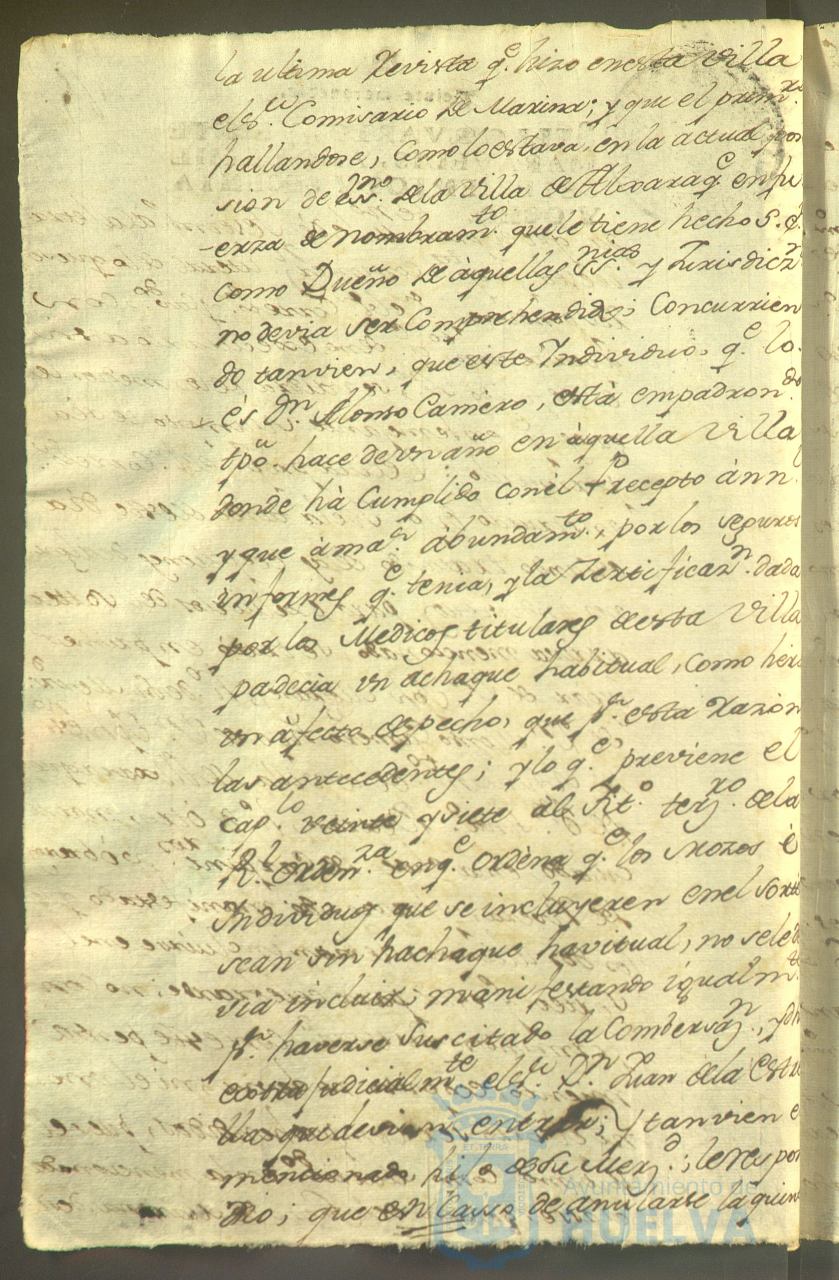 la ultima Revista q.e hizo enesta Villa
el S.r Comisario de Marina; y que el prim.ro
hallandose, como lo estava, en la actual pose
sion de es.no dela Villa de Alxaraq.e en fu
erza de nombram.to que le tiene hecho S. E.
como Dueño de àquellas y Jurisdic.n
no devia ser Comprehendido; Concurrien
do tanvien, que este Individuo, q.e lo
és D.n Alonso Camero, està empadron.do
tpõ. hace de vn año en àquella Villa
donde hà Cumplido con el Precepto ànn.
y que à ma.r abundam.to, por los seguros
informes q.e tenia, y la Zertificaz.n dada
por los Medicos titulares de esta Villa
padecia vn achaque habitual, como hera
vn àfecto de pecho, que p.r esta razon
las antecedentes; y lo q.e previene el
cap.lo veinte y siete del Tit.o terz.ro de la
R.l Orden.za en q.e ordèna q.e los Mozos é
Individuos que se incluyeren en el sorte
sean sin hachaque havitual, no se le de
via incluir; manifestando igualm.te
p.r haverse Suscitado la Combersaz.n, y dh
extrajudicialm.te el S.r D.n Juan de la Estre
lla que devian entrar; y tanvien e
mencionado hijo de Su Merz.d; le respon
dio; que en Causo de anularse la quin
Ayuntamiento de
HUELVA